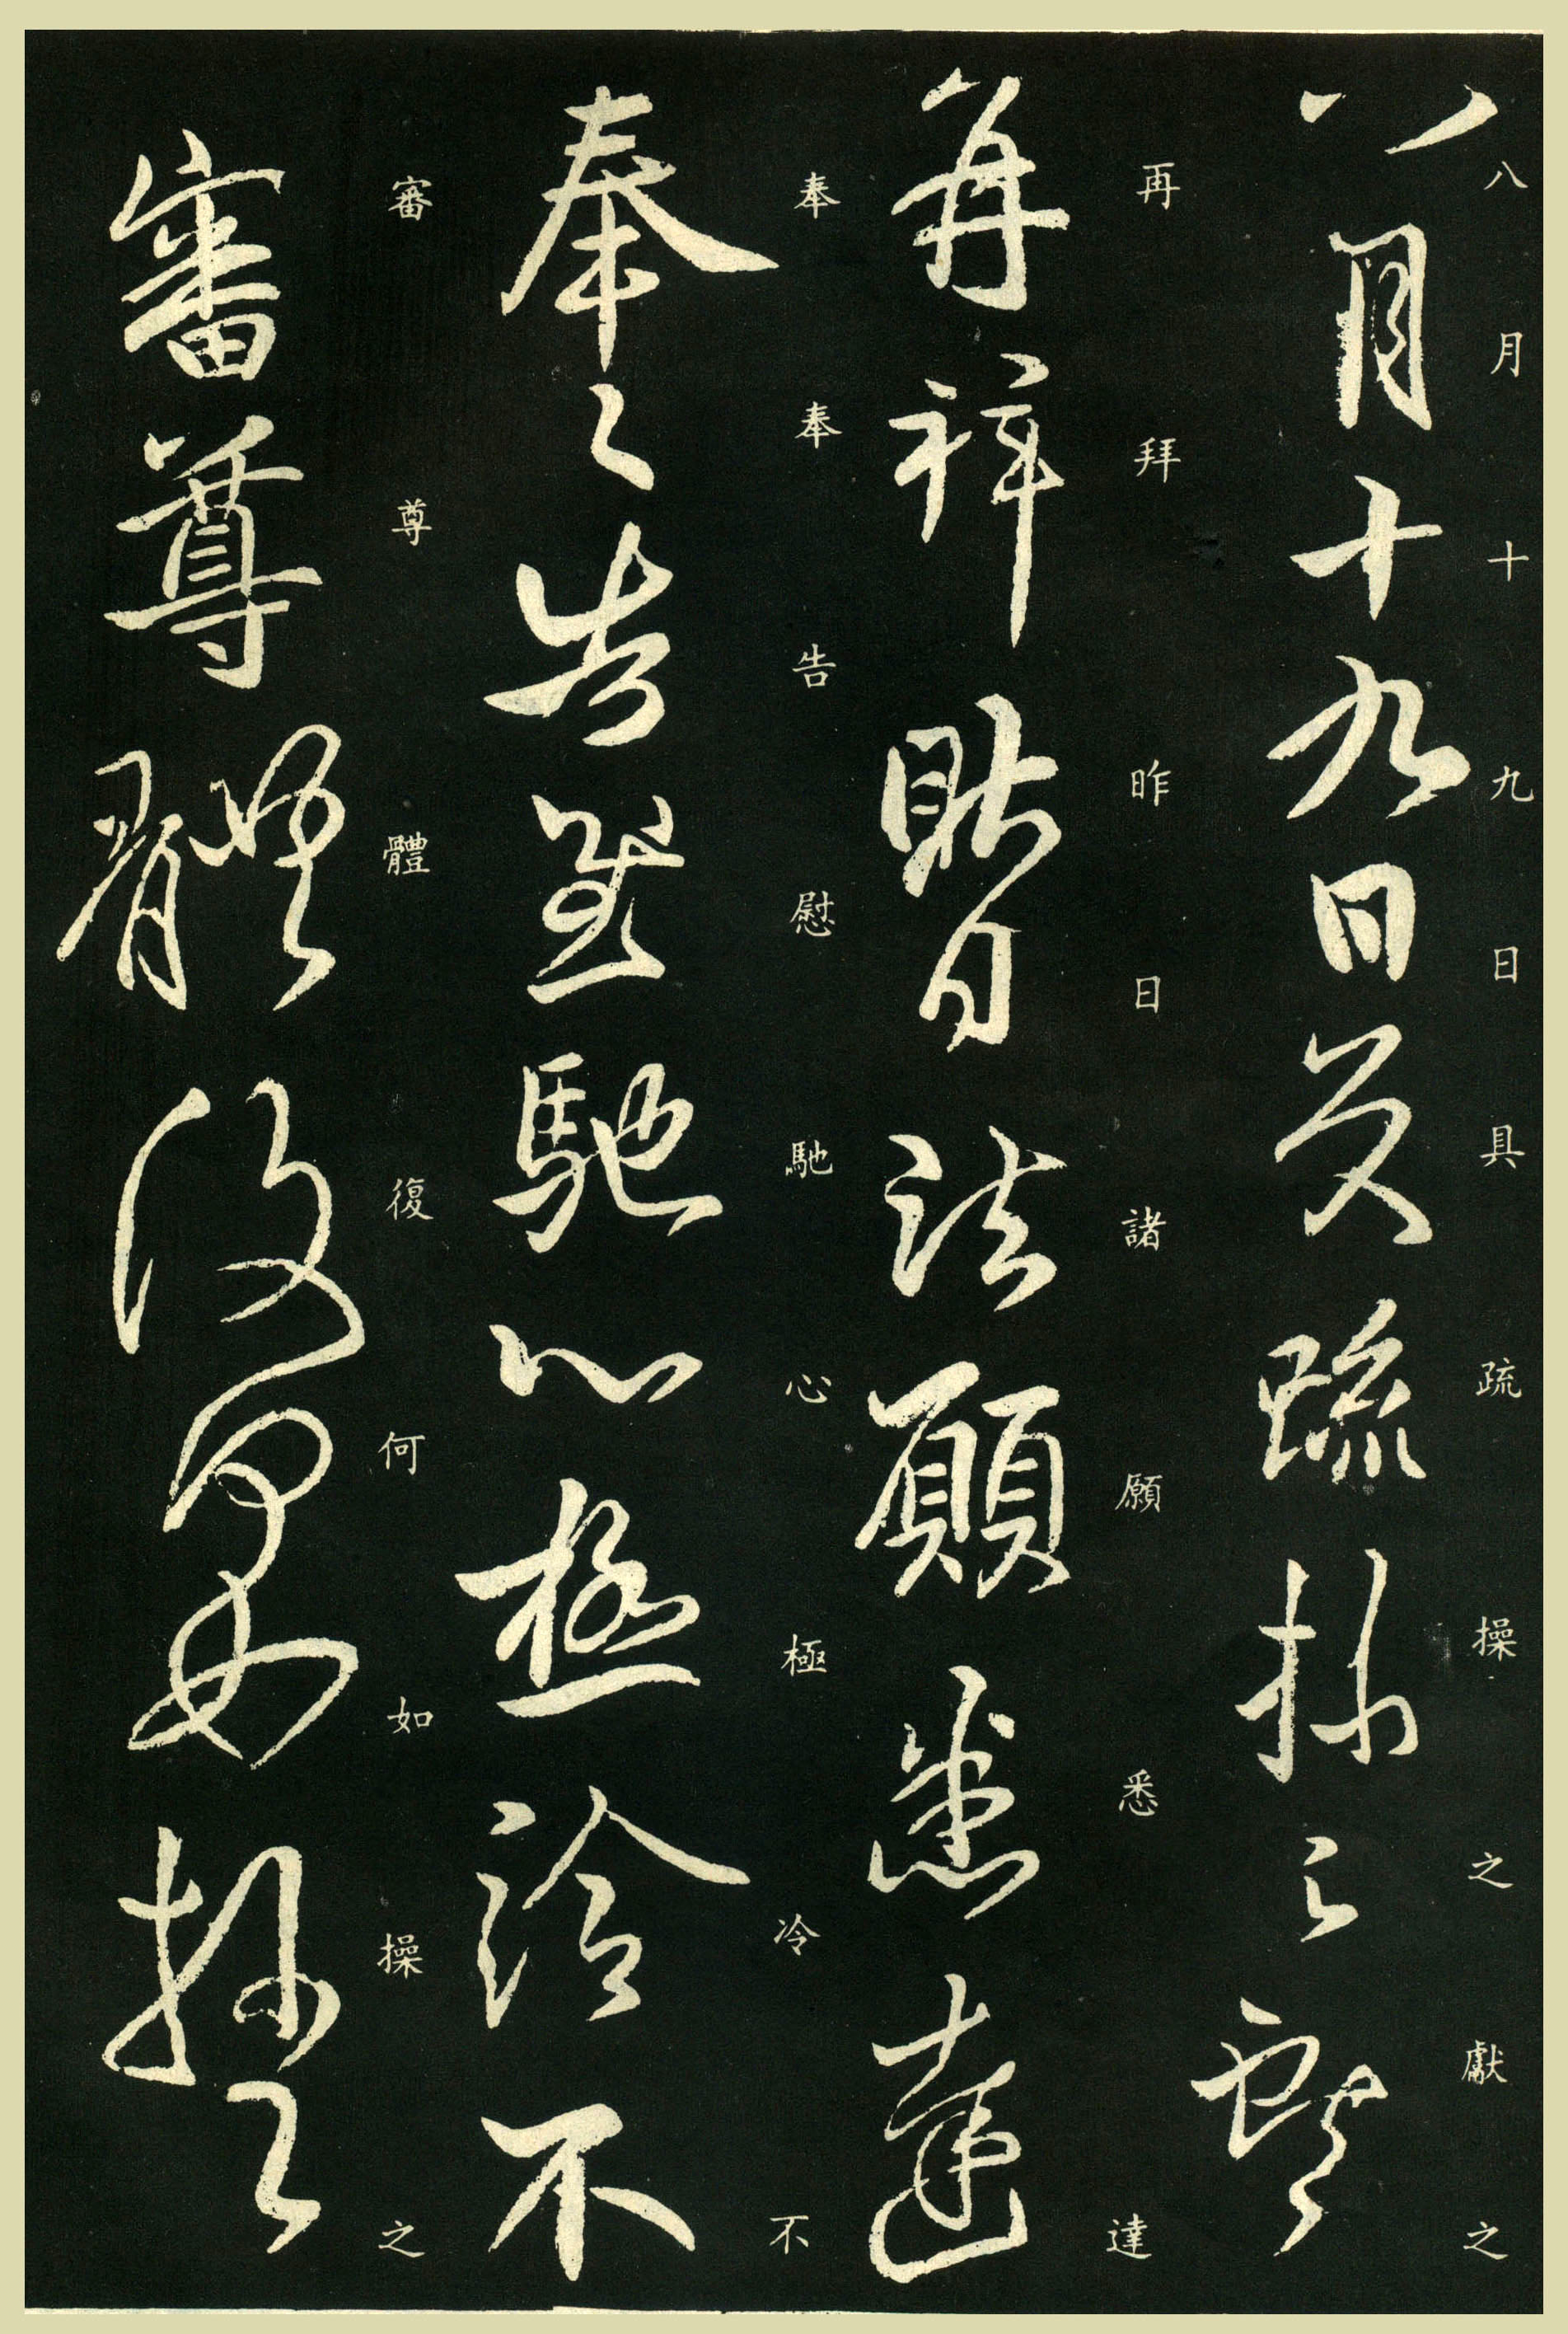 八月十九日具疏操之獻之
再拜昨日諸願悉達
奉奉告慰馳心極冷不
審尊體復何如操之